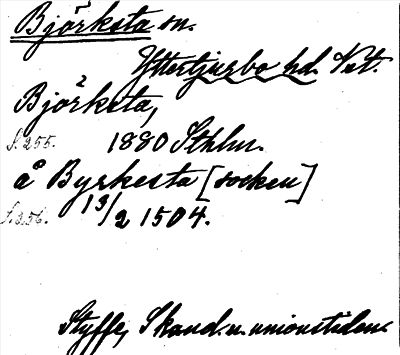 Björksta sn.
Yttertjurbo hd. Vst.
Björksta,
S. 255. 1880 Sthlm.
å Byrkesta [socken]
S. 256. 13/2 1504.
Styffe, Skand. u. unionstiden.